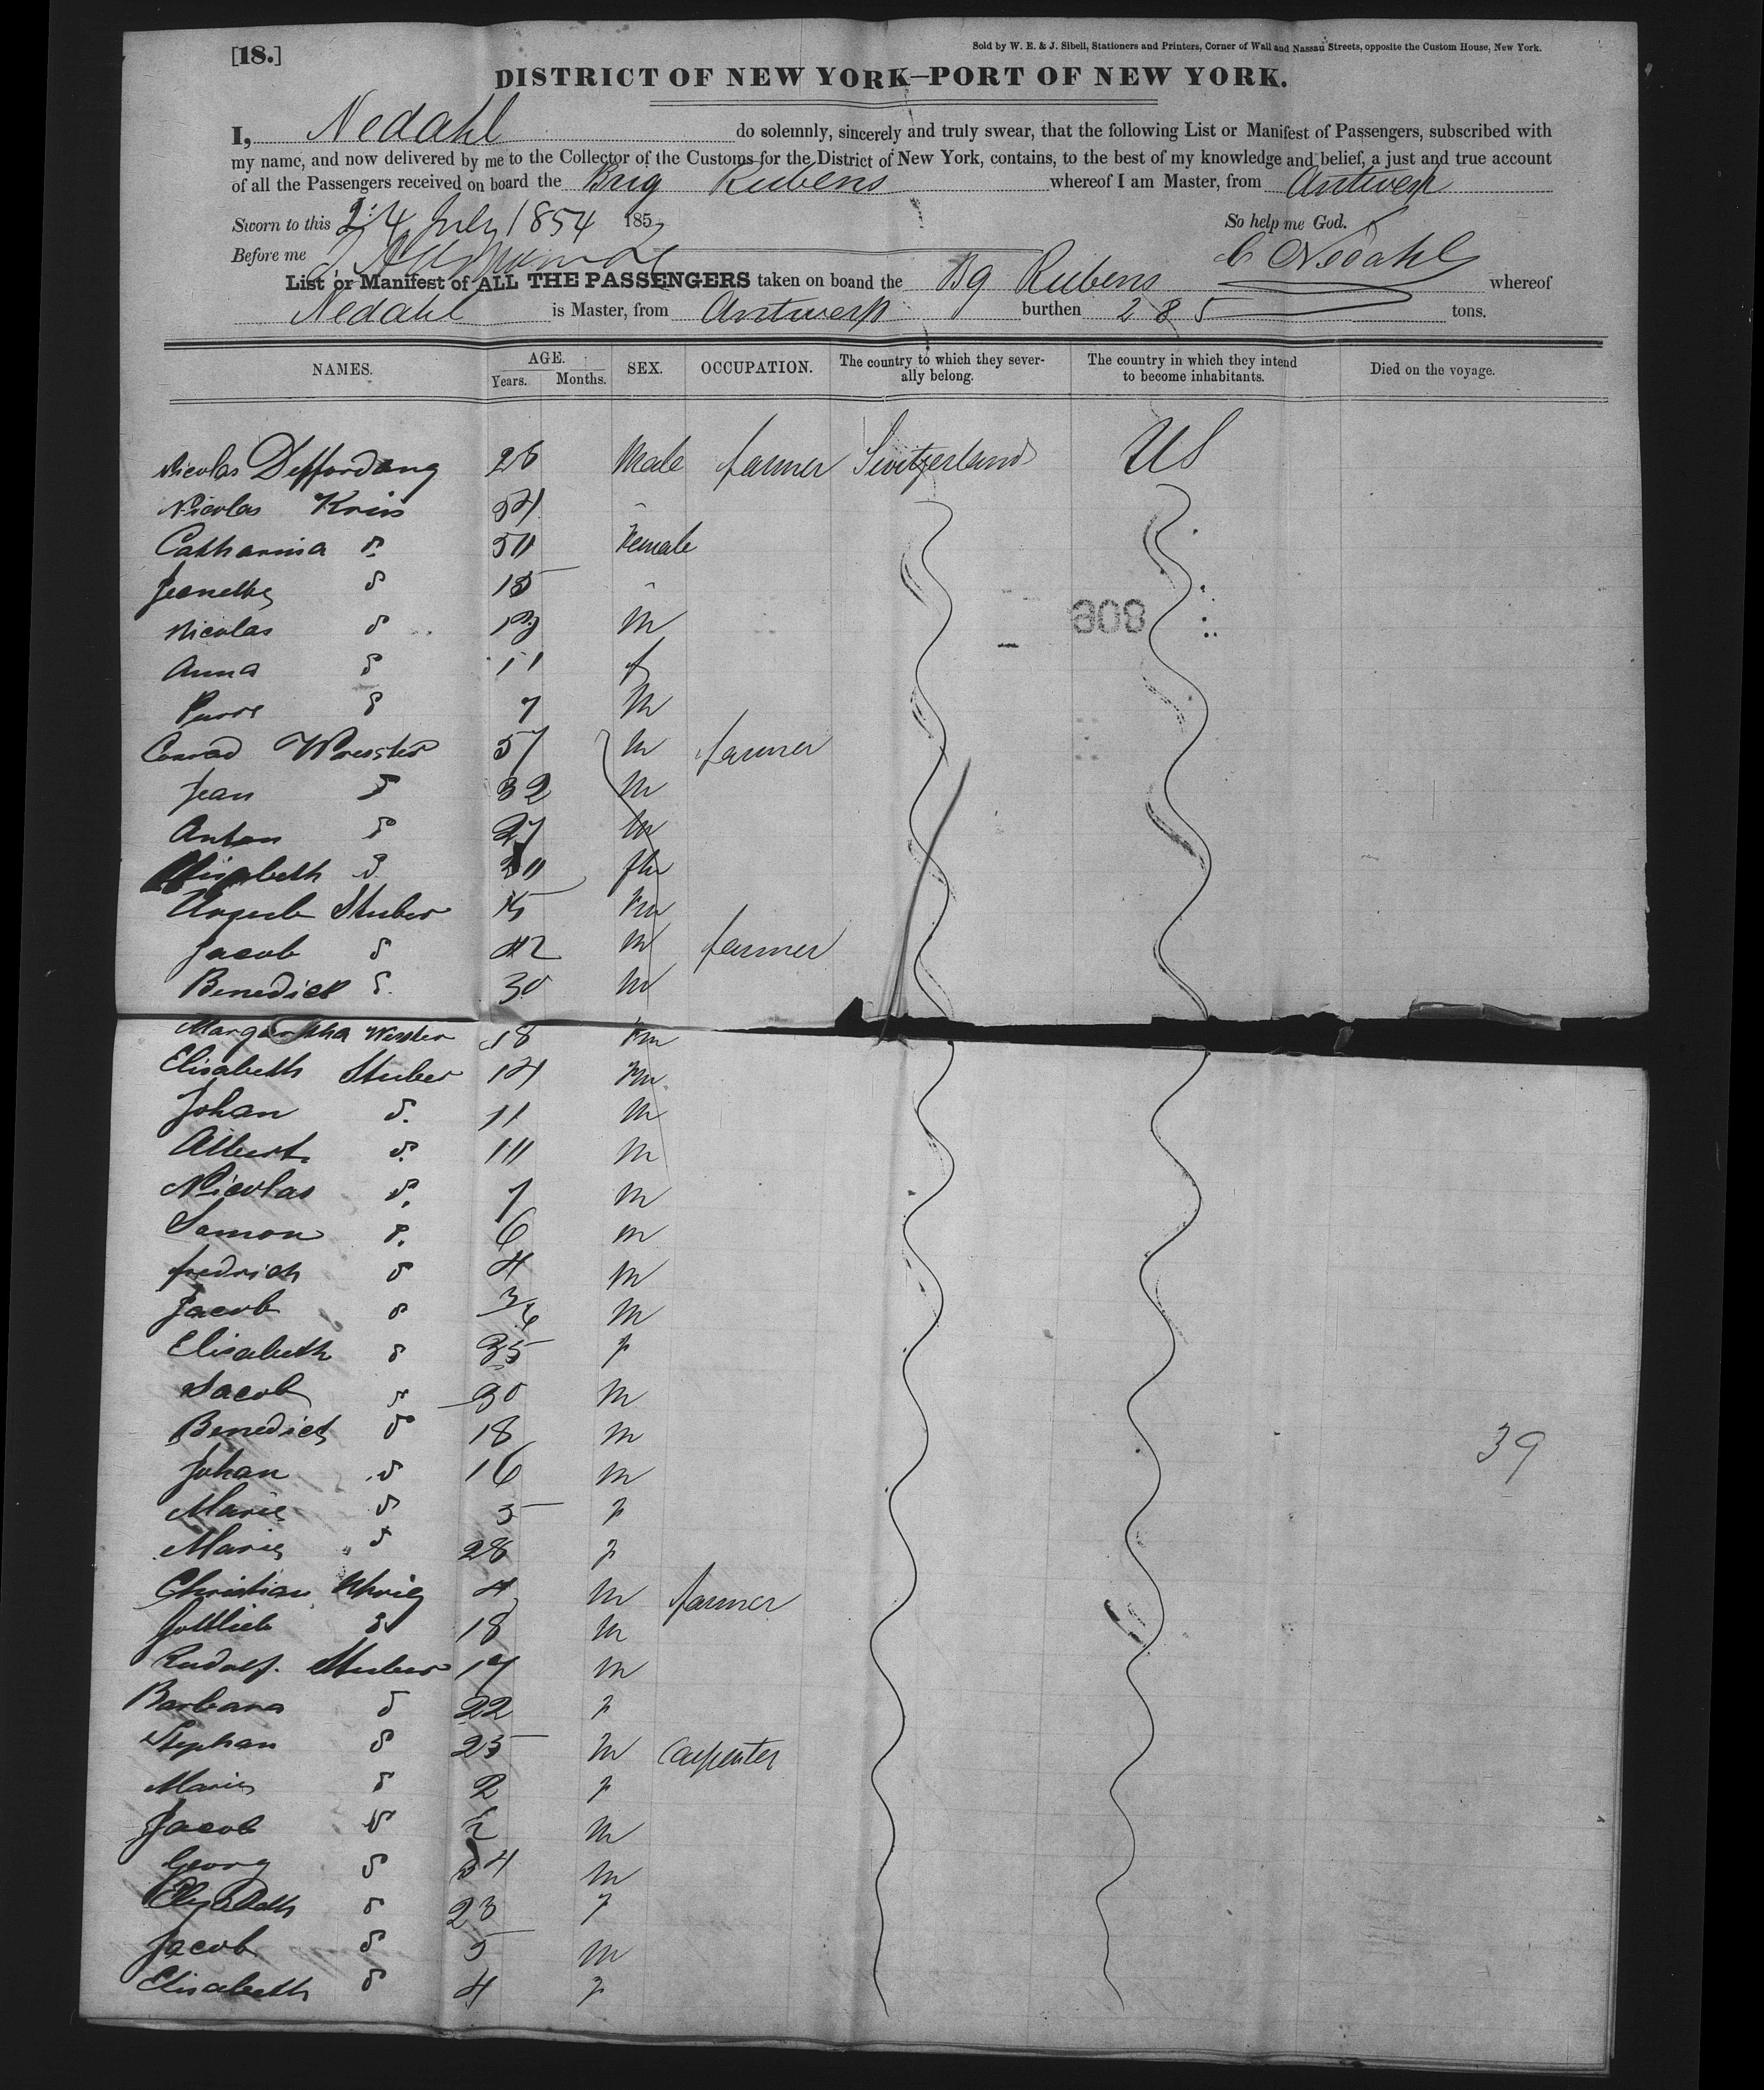 [18.]
Sold by W. E. & J. Sibell, Stationers and Printers, Corner of Wall and Nassau Streets, opposite the Custom House, New York.
DISTRICT OF NEW YORK—PORT OF NEW YORK.
I, Nedahl do solemnly, sincerely and truly swear, that the following List or Manifest of Passengers, subscribed with
my name, and now delivered by me to the Collector of the Customs for the District of New York, contains, to the best of my knowledge and belief, a just and true account
of all the Passengers received on board the Brig Rubens whereof I am Master, from Antwerp
Sworn to this 24 July 1854 185 So help me God.
Before me C Nedahl
List or Manifest of ALL THE PASSENGERS taken on board the Bg Rubens whereof
Nedahl is Master, from Antwerp burthen 285 tons.
NAMES. AGE. Years. Months. SEX. OCCUPATION. The country to which they severally belong. The country in which they intend to become inhabitants. Died on the voyage.
Nicolas Deffordang 26 Male farmer Switzerland US
Nicolas 54
Catharina d. 50 Female
Jeanette d 15
Nicolas d 13 M
908
Anna d 11 f
d 7 M
Conrad 57 M farmer
Jean d 32 M
Anton d 27 M
Elisabeth d. fm
Stuber fm
Jacob d 42 M farmer
Benedict d. 30 M
18 fm
Elisabeth Stuber 14 fm
Johan d. 11 M
Albert d. 10 M
Nicolas d. 7 M
Samon d. 6 M
fredrich d 4 M
Jacob d M
Elisabeth d 35 f
Jacob d 30 M
Benedict d 18 M
39
Johan d 16 M
Marie d 5 f
Marie d 28 f
Christian M farmer
Gottlieb d 18 M
Rudolf. Stuber 17 M
Barbara d 22 f
Stephan d 25 M Carpenter
Marie d 2 f
Jacob d M
Georg d M
Elisabeth d 23 f
Jacob d 5 M
Elisabeth d 4 f